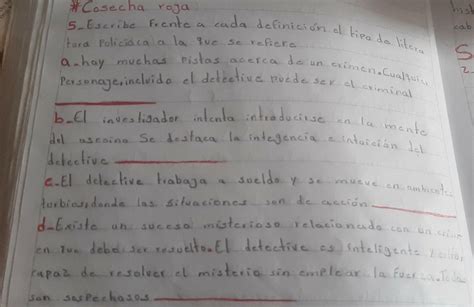 *Cosecha roja
5_Escribe frente a cada definición el tipo de litera
tura Policiaca a la que se refiere
a_hay muchas Pistas acerca de un crimen. Cualquier
Personaje, incluido el detective puede ser el criminal
b_El investigador intenta introducirse en la mente
del asesino Se destaca la integencia e intuición del
detective
c_El detective trabaja a sueldo y se mueve en ambientes
turbios donde las situaciones son de acción
d_Existe un suceso misterioso relacionado con un crimen
en que debe ser resuelto. El detective es inteligente
capaz de resolver el misterio sin emplear la fuerza. Todos
son sospechosos
5
2.